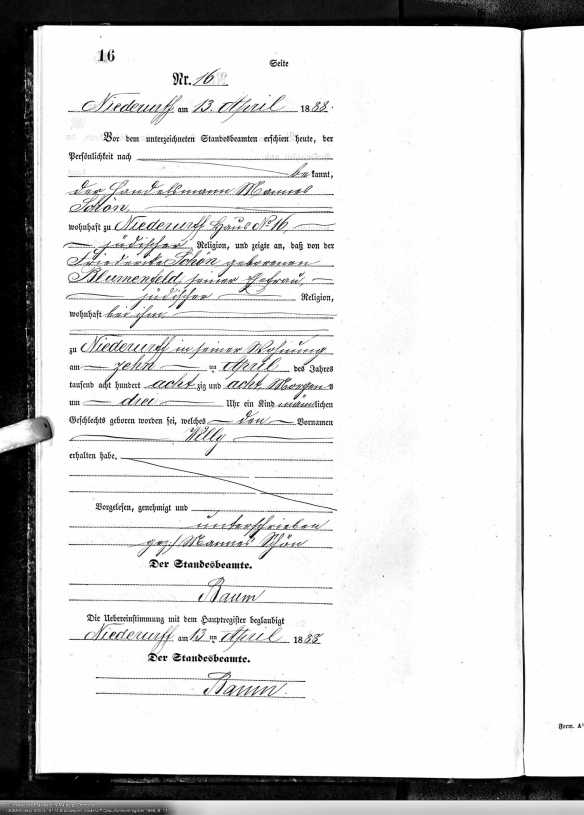 16
Seite
Nr. 16
Niederurff am 13. April 1888.
Vor dem unterzeichneten Standesbeamten erschien heute, der
Persönlichkeit nach
bekannt,
der Handelsmann Mannes
Schön,
wohnhaft zu Niederurff Haus No 16,
jüdischer Religion, und zeigte an, daß von der
Friederike Schön geborenen
Blumenfeld, seiner Ehefrau,
jüdischer Religion,
wohnhaft bei ihm
zu Niederurff in seiner Wohnung
am zehn ten April des Jahres
tausend acht hundert acht zig und acht, Morgens
um drei Uhr ein Kind männlichen
Geschlechts geboren worden sei, welches den Vornamen
Willy
erhalten habe.
Vorgelesen, genehmigt und
unterschrieben
gez. Mannes Schön
Der Standesbeamte.
Baum
Die Uebereinstimmung mit dem Hauptregister beglaubigt
Niederurff am 13 ten April 1888
Der Standesbeamte.
Baum